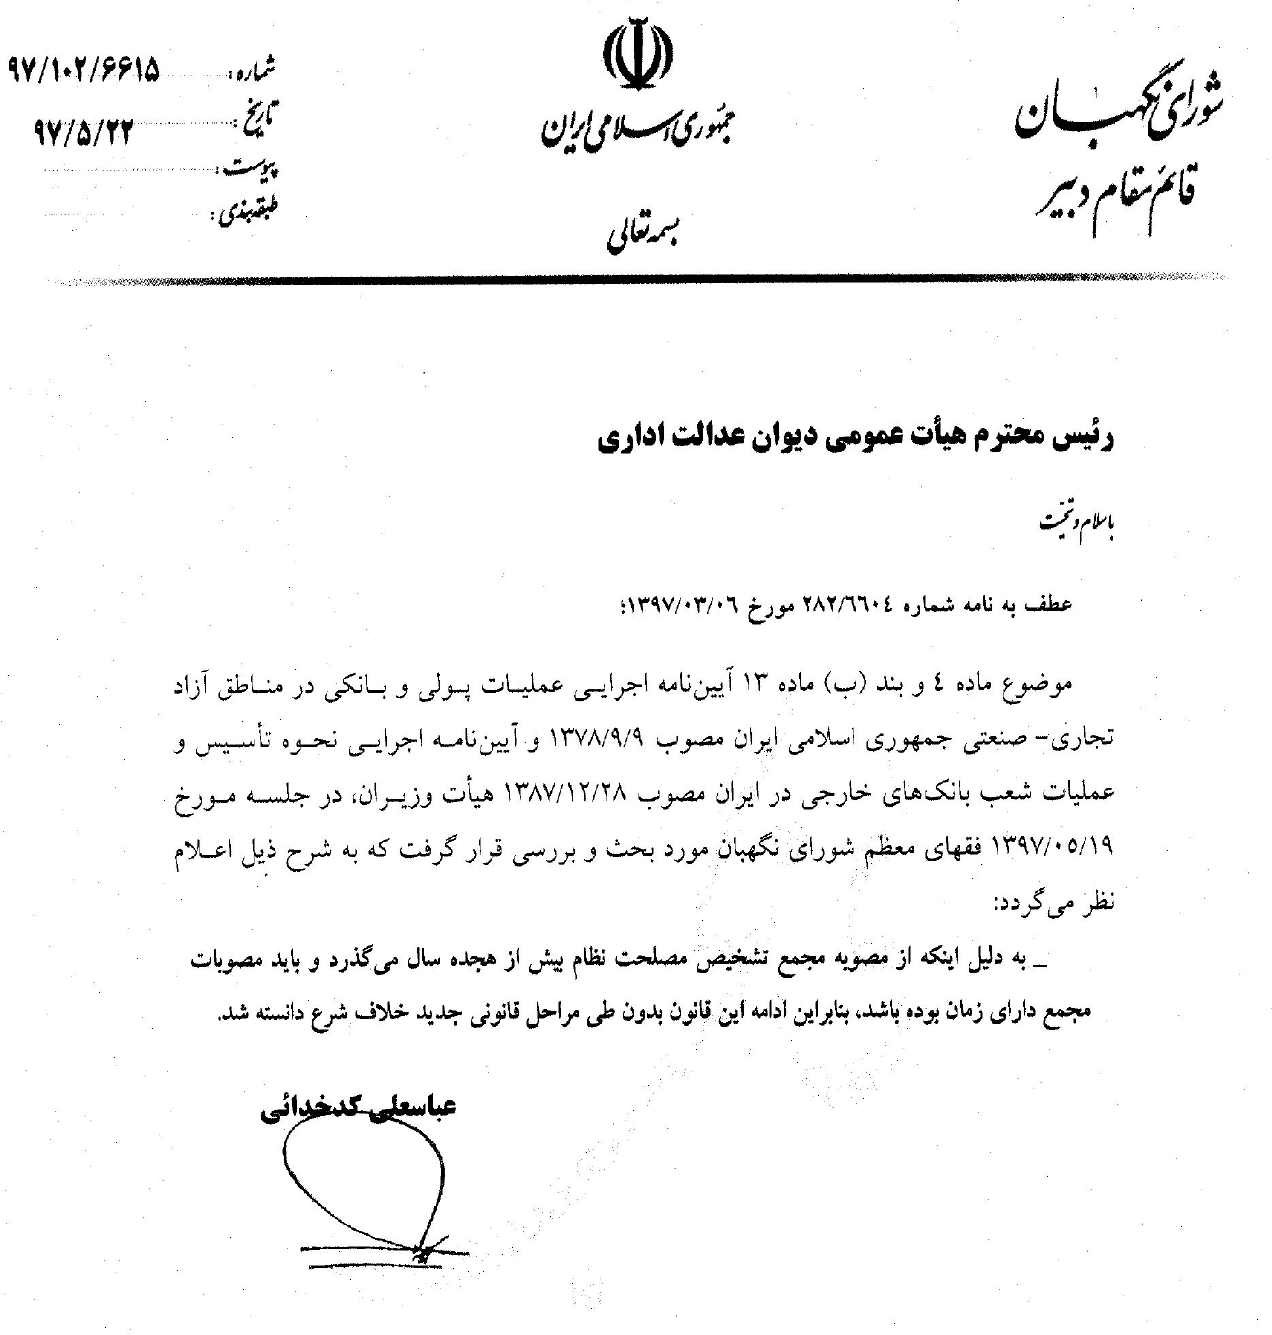 شورای نگهبان
قائم مقام دبیر
جمهوری اسلامی ایران
بسمه تعالی
شماره: ۹۷/۱۰۲/۶۶۱۵
تاریخ: ۹۷/۵/۲۲
پیوست:
طبقه‌بندی:
رئیس محترم هیأت عمومی دیوان عدالت اداری
باسلام و تحیت
عطف به نامه شماره ۲۸۲/٦٦۰٤ مورخ ۱۳۹۷/۰۳/۰٦؛
موضوع ماده ٤ و بند (ب) ماده ۱۳ آیین‌نامه اجرایی عملیات پولی و بانکی در مناطق آزاد
تجاری- صنعتی جمهوری اسلامی ایران مصوب ۱۳۷۸/۹/۹ و آیین‌نامه اجرایی نحوه تأسیس و
عملیات شعب بانک‌های خارجی در ایران مصوب ۱۳۸۷/۱۲/۲۸ هیأت وزیران، در جلسه مورخ
۱۳۹۷/۰٥/۱۹ فقهای معظم شورای نگهبان مورد بحث و بررسی قرار گرفت که به شرح ذیل اعلام
نظر می‌گردد:
_ به دلیل اینکه از مصوبه مجمع تشخیص مصلحت نظام بیش از هجده سال می‌گذرد و باید مصوبات
مجمع دارای زمان بوده باشد، بنابراین ادامه این قانون بدون طی مراحل قانونی جدید خلاف شرع دانسته شد.
عباسعلی کدخدائی